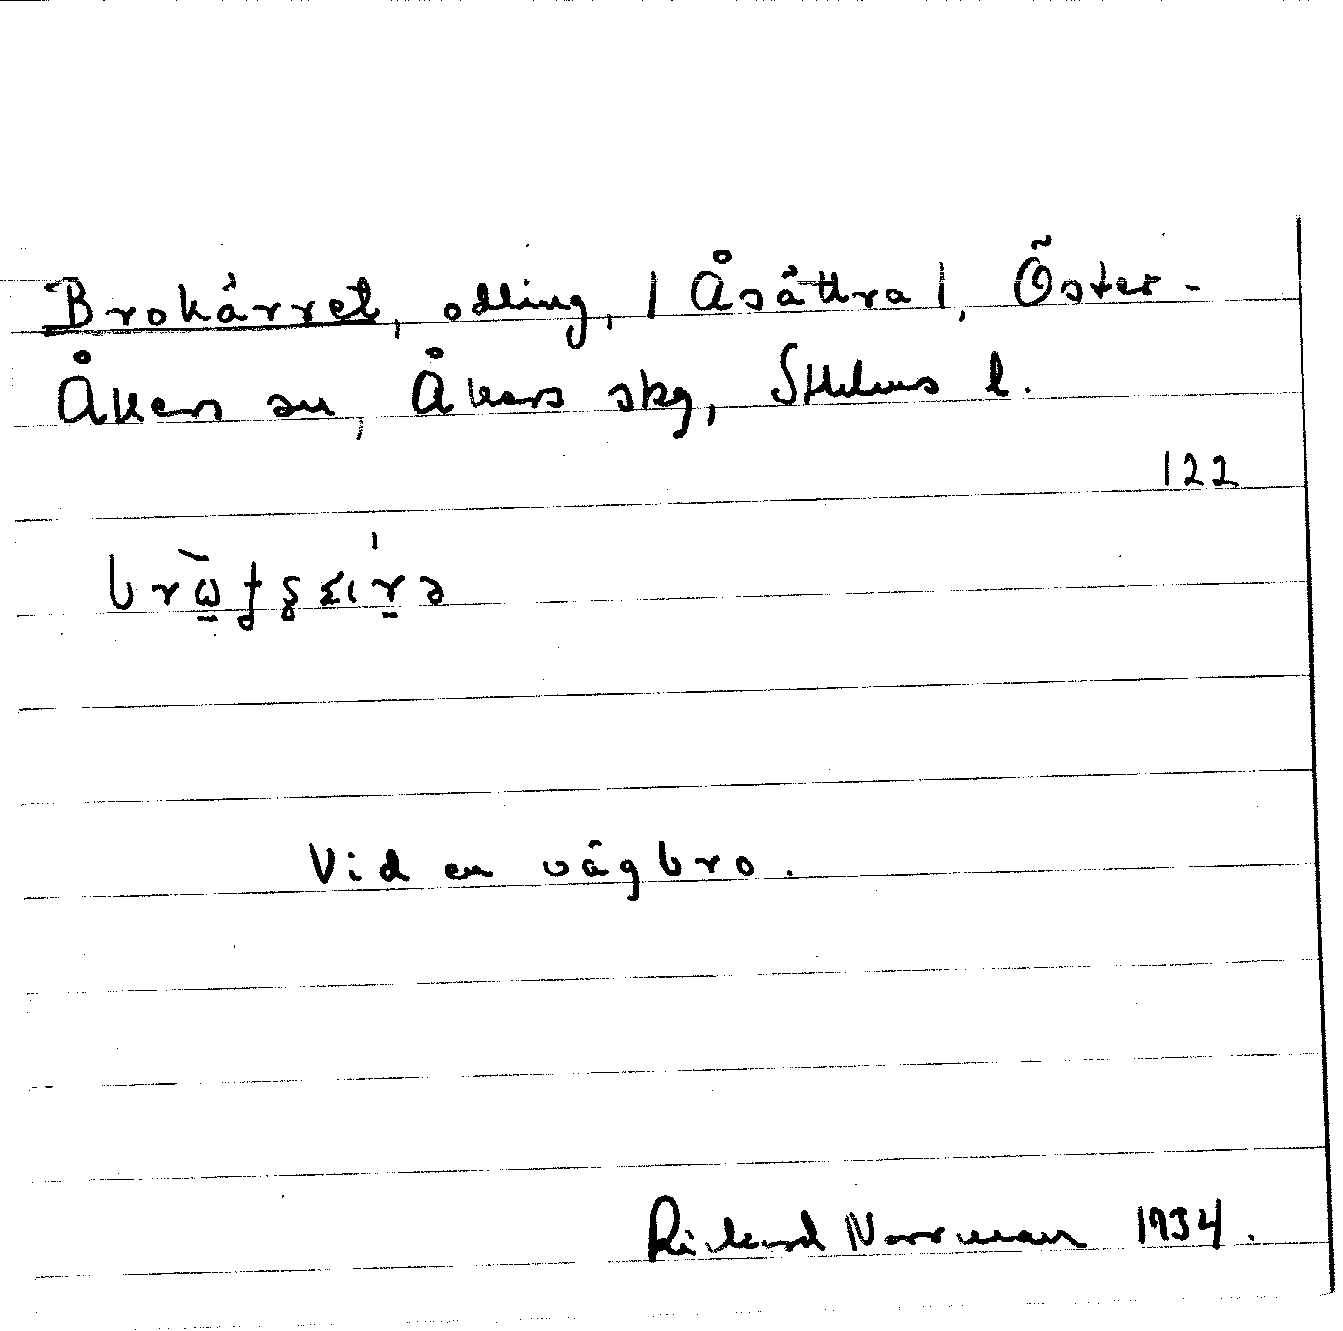 Brokärret, odling, | Åsättra |, Öster-
Åkers sn, Åkers skg, Sthlms l.
122
Vid en vägbro.
Rickard Norrman 1934.